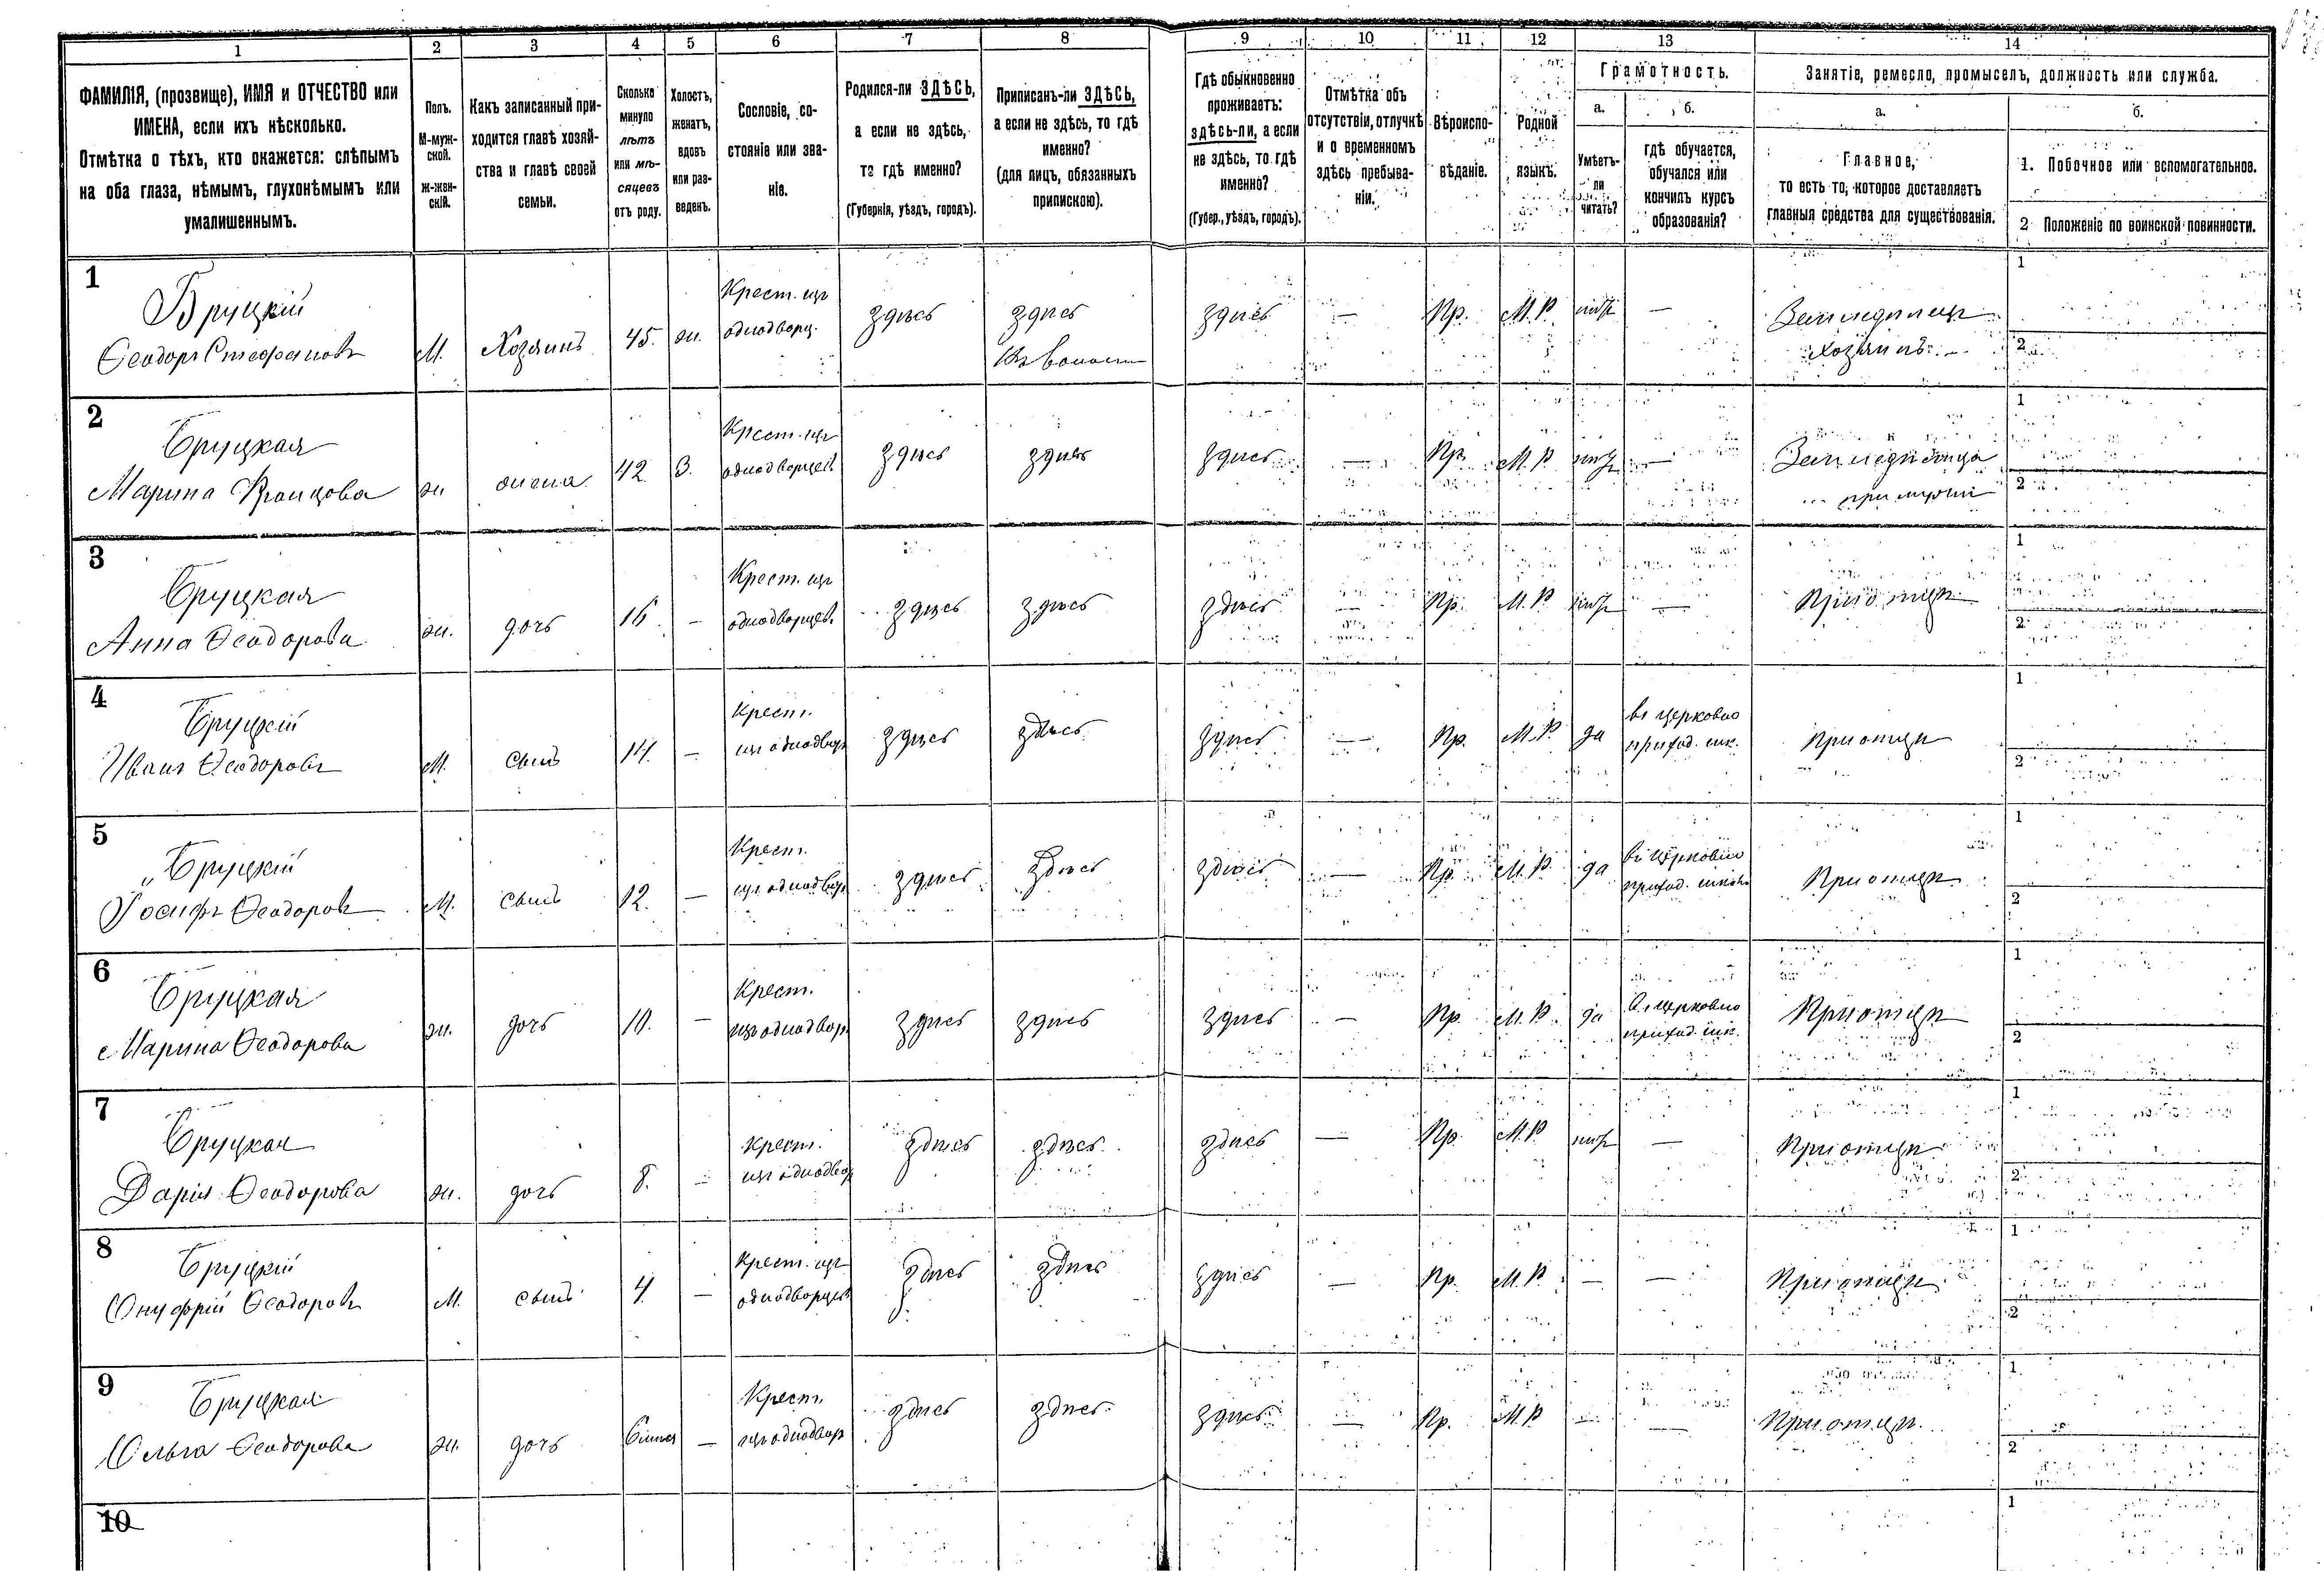 1 2 3 4 5 6 7 8 9 10 11 12 13 14
ФАМИЛІЯ, (прозвище), ИМЯ и ОТЧЕСТВО или
ИМЕНА, если ихъ нѣсколько.
Отмѣтка о тѣхъ, кто окажется: слѣпымъ
на оба глаза, нѣмымъ, глухонѣмымъ или
умалишеннымъ.
Полъ.
М-муж-
ской.
Ж-жен-
скій.
Какъ записанный при-
ходится главѣ хозяй-
ства и главѣ своей
семьи.
Сколько
минуло
лѣтъ
или мѣ-
сяцевъ
отъ роду.
Холостъ,
женатъ,
вдовъ
или раз-
веденъ.
Сословіе, со-
стояніе или зва-
ніе.
Родился-ли ЗДѢСЬ,
а если не здѣсь,
то гдѣ именно?
(Губернія, уѣздъ, городъ).
Приписанъ-ли ЗДѢСЬ,
а если не здѣсь, то гдѣ
именно?
(для лицъ, обязанныхъ
припискою).
Гдѣ обыкновенно
проживаетъ:
здѣсь-ли, а если
не здѣсь, то гдѣ
именно?
(Губер., уѣздъ, городъ).
Отмѣтка объ
отсутствіи, отлучкѣ
и о временномъ
здѣсь пребыва-
ніи.
Вѣроиспо-
вѣданіе.
Родной
языкъ.
Грамотность.
а.
Умѣетъ-
ли
читать?
б.
гдѣ обучается,
обучался или
кончилъ курсъ
образованія?
Занятіе, ремесло, промыселъ, должность или служба.
а.
Главное,
то есть то, которое доставляетъ
главныя средства для существованія.
б.
1. Побочное или вспомогательное.
2 Положеніе по воинской повинности.
1
Бруцкій
Ѳеодоръ Стефановъ
М.
Хозяинъ
45.
ж.
Крест. изъ
однодворц.
здѣсь
здѣсь
здѣсь
—
Пр.
М.Р.
нѣтъ
—
Земледѣлецъ
хозяинъ.
1
2
2
Бруцкая
Марина
ж
жена
42
З.
Крест. изъ
однодворцев.
здѣсь
здѣсь
здѣсь
—
Пр.
М.Р.
нѣтъ
—
при мужѣ
1
2
3
Бруцкая
Анна Ѳеодорова
ж.
дочь
16
—
Крест. изъ
однодворцев.
здѣсь
здѣсь
здѣсь
—
Пр.
М.Р.
нѣтъ
—
При отцѣ
1
2
4
Бруцкій
Иванъ Ѳеодоровъ
М.
сынъ
14.
—
Крест.
изъ однодвор
здѣсь
здѣсь
здѣсь
—
Пр.
М.Р.
да
въ церковно
приход. шк.
При отцѣ
1
2
5
Бруцкій
Іосифъ Ѳеодоровъ
М.
сынъ
12.
—
Крест.
изъ однодвор
здѣсь
здѣсь
здѣсь
—
Пр.
М.Р.
да
въ церковно
При отцѣ
1
2
6
Бруцкая
Марина Ѳеодорова
ж.
дочь
10.
—
Крест.
изъ однодвор.
здѣсь
здѣсь
здѣсь
—
Пр.
М.Р.
да
въ церковно
приход. шк.
При отцѣ
1
2
7
Бруцкая
Дарія Ѳеодорова
ж.
дочь
8.
—
Крест.
изъ однодвор
здѣсь
здѣсь
здѣсь
—
Пр.
М.Р.
нѣтъ
—
При отцѣ
1
2
8
Бруцкій
Онуфрій Ѳеодоровъ
М.
сынъ
4
—
Крест. изъ
однодворцев
здѣсь
здѣсь
здѣсь
—
Пр.
М.Р.
—
—
При отцѣ
1
2
9
Бруцкая
Ольга Ѳеодорова
ж.
дочь
—
Крест.
изъ однодвор
здѣсь
здѣсь
здѣсь
—
Пр.
М.Р
—
—
При отцѣ
1
2
10
1